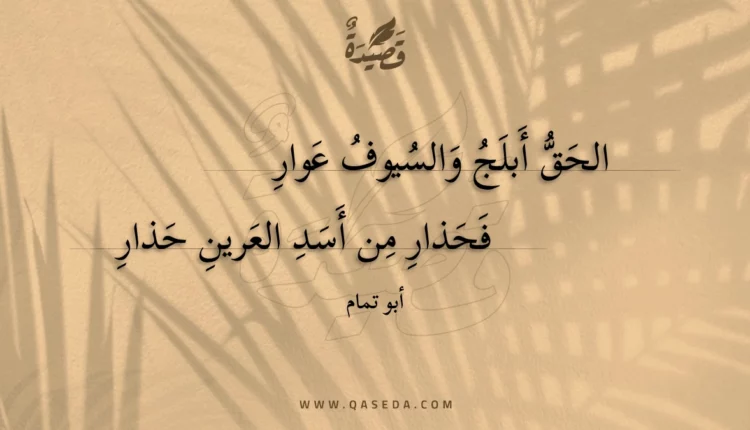 قَصِيْدَةٌ
الحَقُّ أَبلَجُ وَالسُيوفُ عَوارِ
فَحَذارِ مِن أَسَدِ العَرينِ حَذارِ
أبو تمام
WWW.QASEDA.COM